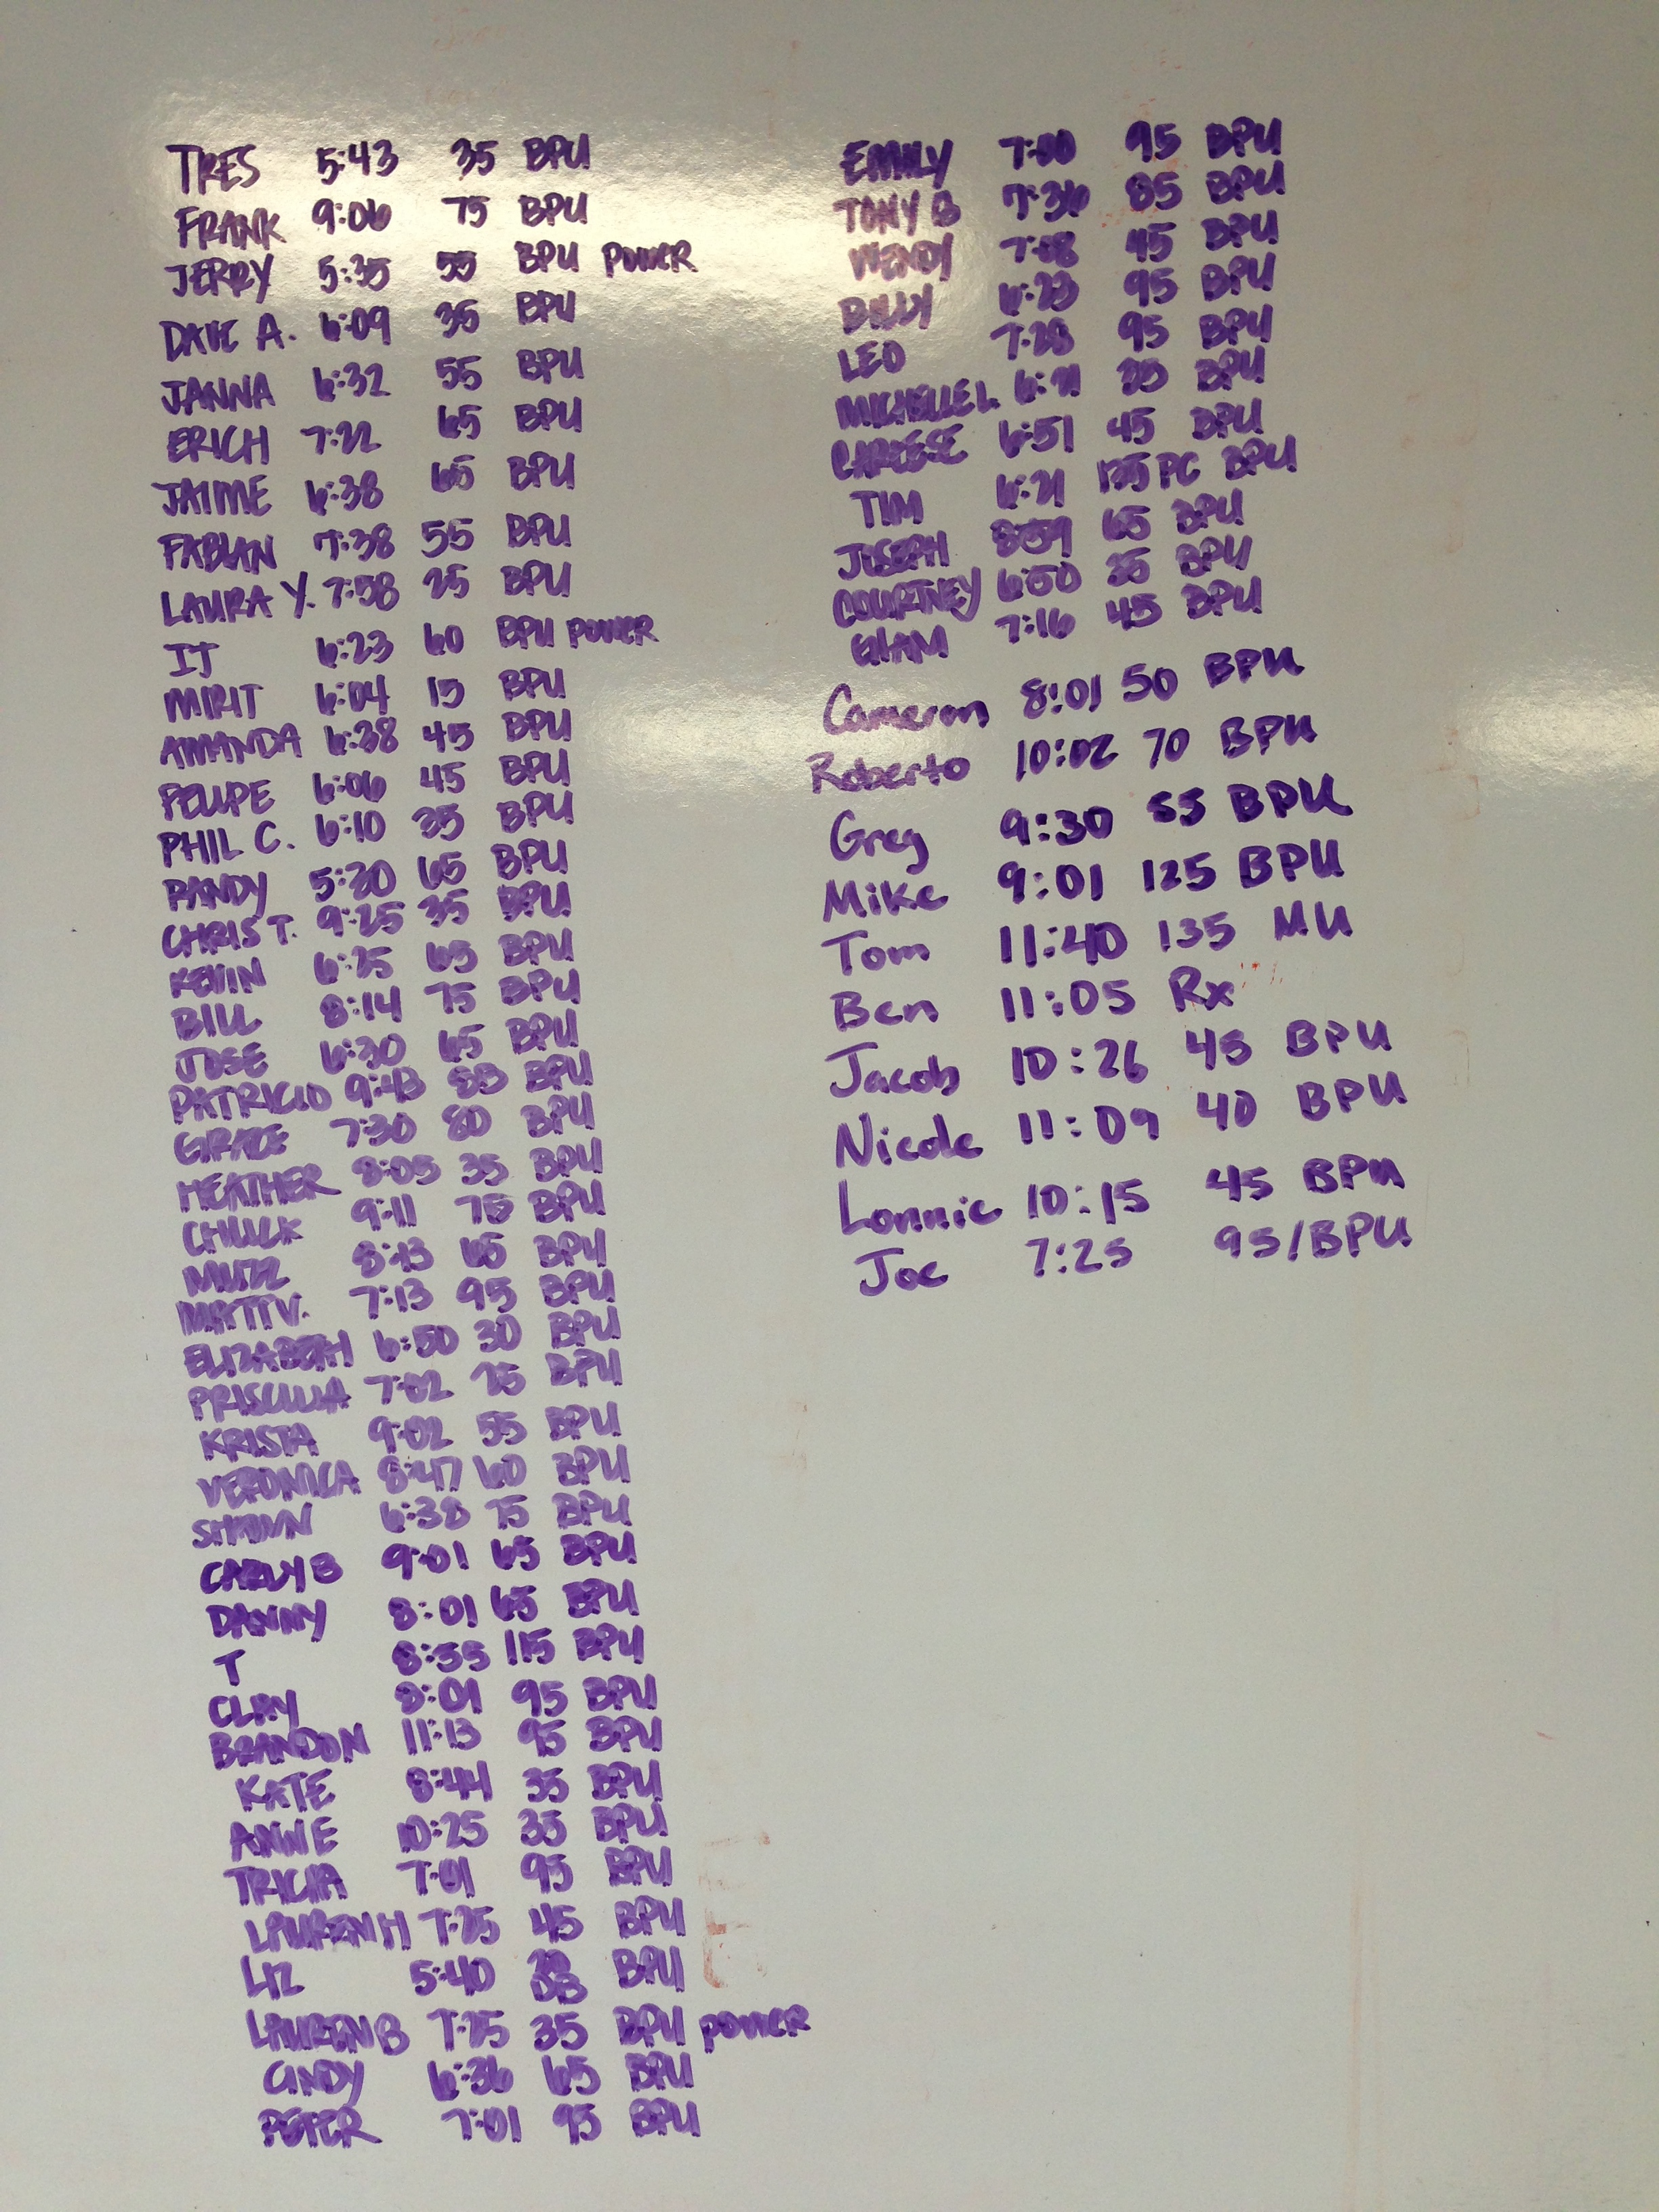 TRES 5:43 35 BPU
FRANK 9:06 75 BPU
JERRY 5:35 55 BPU POWER
DAVE A. 6:09 35 BPU
JANNA 6:32 55 BPU
ERICH 7:22 65 BPU
JAIME 6:38 65 BPU
FABIAN 7:38 55 BPU
LAURA Y. 7:58 25 BPU
IT 6:23 60 BPU POWER
MIRIT 6:04 15 BPU
AMANDA 6:38 45 BPU
FELIPE 6:06 45 BPU
PHIL C. 6:10 35 BPU
RANDY 5:20 65 BPU
CHRIS T. 9:25 35 BPU
KEVIN 6:25 65 BPU
BILL 8:14 75 BPU
JOSE 6:30 65 BPU
PATRICIO 9:43 85 BPU
GRACE 7:30 80 BPU
HEATHER 8:05 35 BPU
CHUCK 9:11 75 BPU
MUZZ 8:43 65 BPU
MATT V. 7:13 95 BPU
ELIZABETH 6:50 30 BPU
PRISCILLA 7:02 25 BPU
KRISTA 9:02 55 BPU
VERONICA 8:47 60 BPU
SHAWN 6:38 75 BPU
CARLY B 9:01 65 BPU
DANNY 8:01 65 BPU
T 8:35 115 BPU
CLAY 8:01 95 BPU
BRANDON 11:13 95 BPU
KATE 8:44 35 BPU
ANNIE 10:25 35 BPU
TRICIA 7:01 95 BPU
LAUREN H 7:25 45 BPU
LIZ 5:40 20 DB BPU
LAUREN B 7:25 35 BPU POWER
CINDY 6:36 65 BPU
PETER 7:01 95 BPU
EMILY 7:00 95 BPU
TONY B 7:36 85 BPU
WENDY 7:08 45 BPU
BILLY 6:23 95 BPU
LEO 7:28 95 BPU
MICHELLE L. BPU
6:51 45 BPU
TIM 6:21 135 PC BPU
JOSEPH 8:59 65 BPU
COURTNEY 6:50 35 BPU
7:16 45 BPU
Cameron 8:01 50 BPU
Roberto 10:02 70 BPU
Greg 9:30 55 BPU
Mike 9:01 125 BPU
Tom 11:40 135 MU
Ben 11:05 Rx
Jacob 10:26 45 BPU
Nicole 11:09 40 BPU
Lonnie 10:15 45 BPU
Joe 7:25 95/BPU